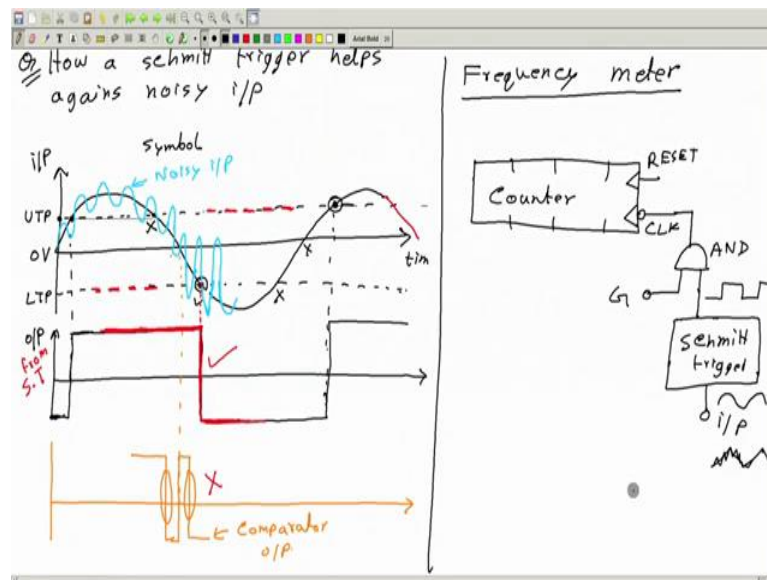 Arial Bold
Q/ How a schmitt trigger helps
agains noisy i/p
symbol
i/p
Noisy i/p
UTP
0V
tim
LTP
O/P
from
S.T
Comparator
O/P
Frequency meter
RESET
Counter
CLK
AND
G
Schmitt
trigger
i/p